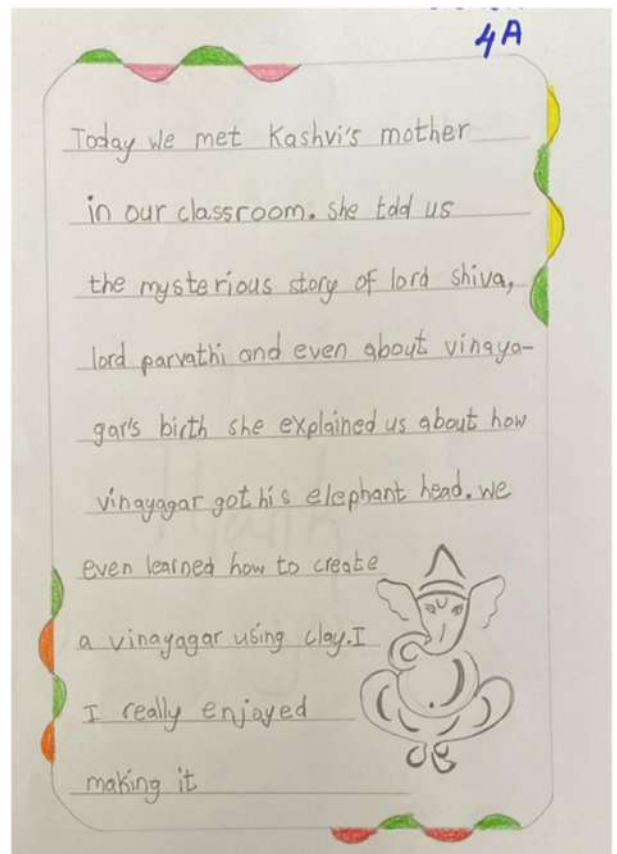 4A
Today we met Kashvi's mother
in our classroom. she told us
the mysterious story of lord shiva,
lord parvathi and even about vinaya-
gar's birth she explained us about how
vinayagar got his elephant head. we
even learned how to create
a vinayagar using clay. I
I really enjoyed
making it